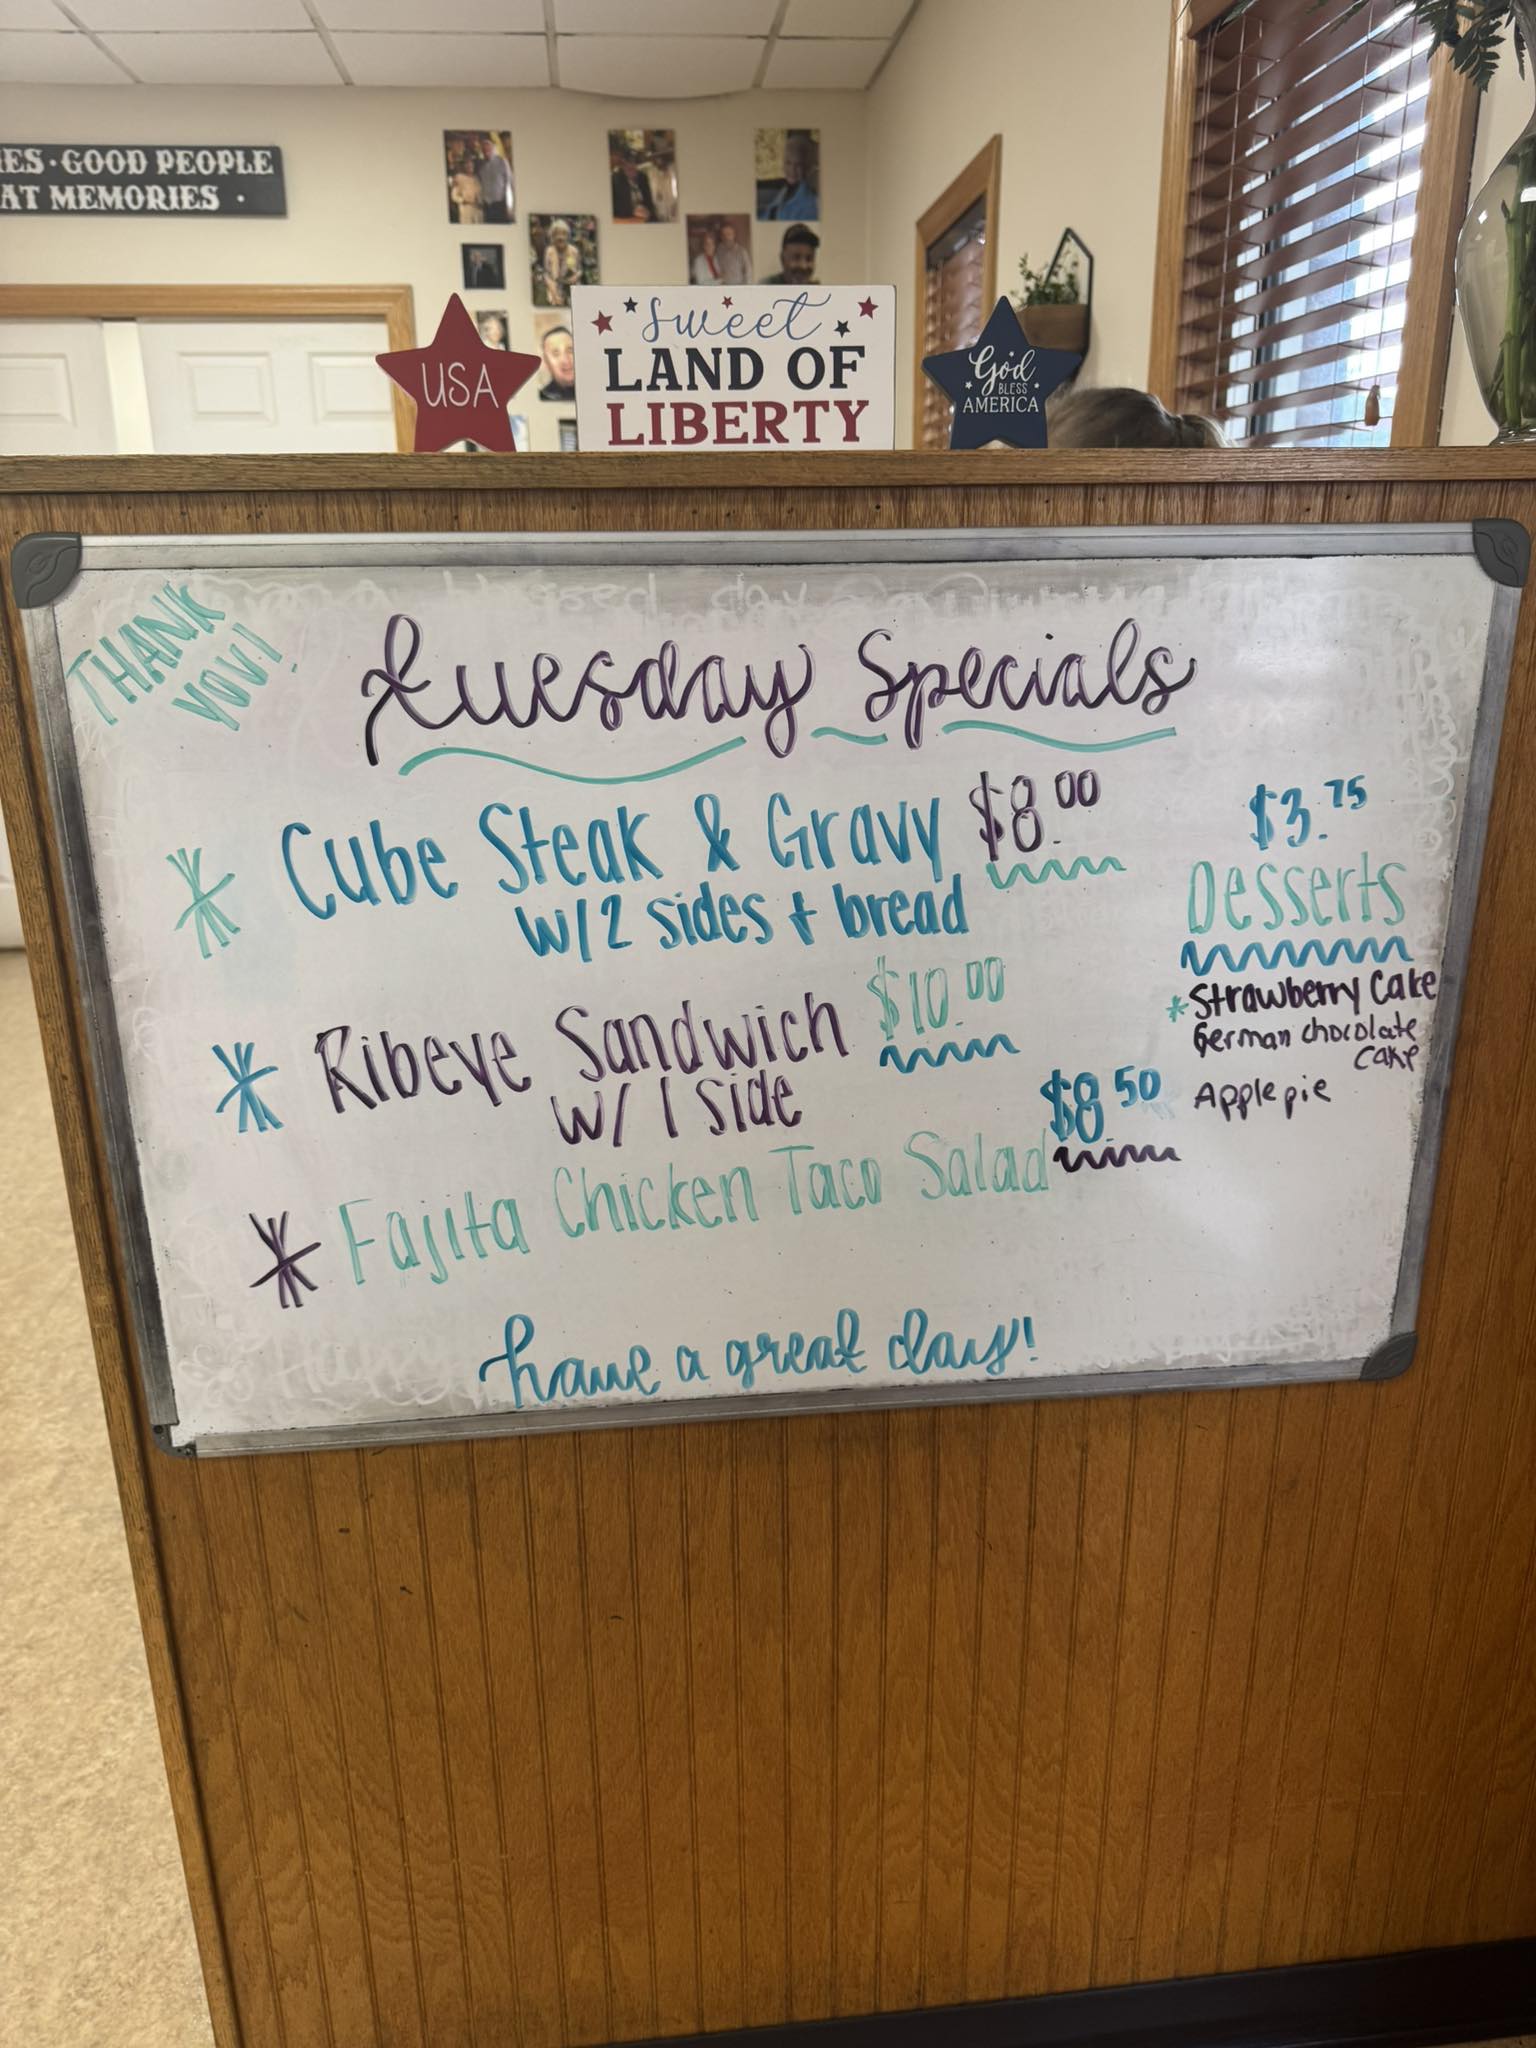 ES · GOOD PEOPLE
AT MEMORIES ·
USA
Sweet
LAND OF
LIBERTY
God
BLESS
AMERICA
THANK
YOU!
Tuesday Specials
Cube Steak & Gravy $8.00
w/2 sides + bread
Ribeye Sandwich $10.00
w/ 1 side
Fajita Chicken Taco Salad $8.50
have a great day!
$3.75
Desserts
*Strawberry Cake
German chocolate
cake
Apple pie